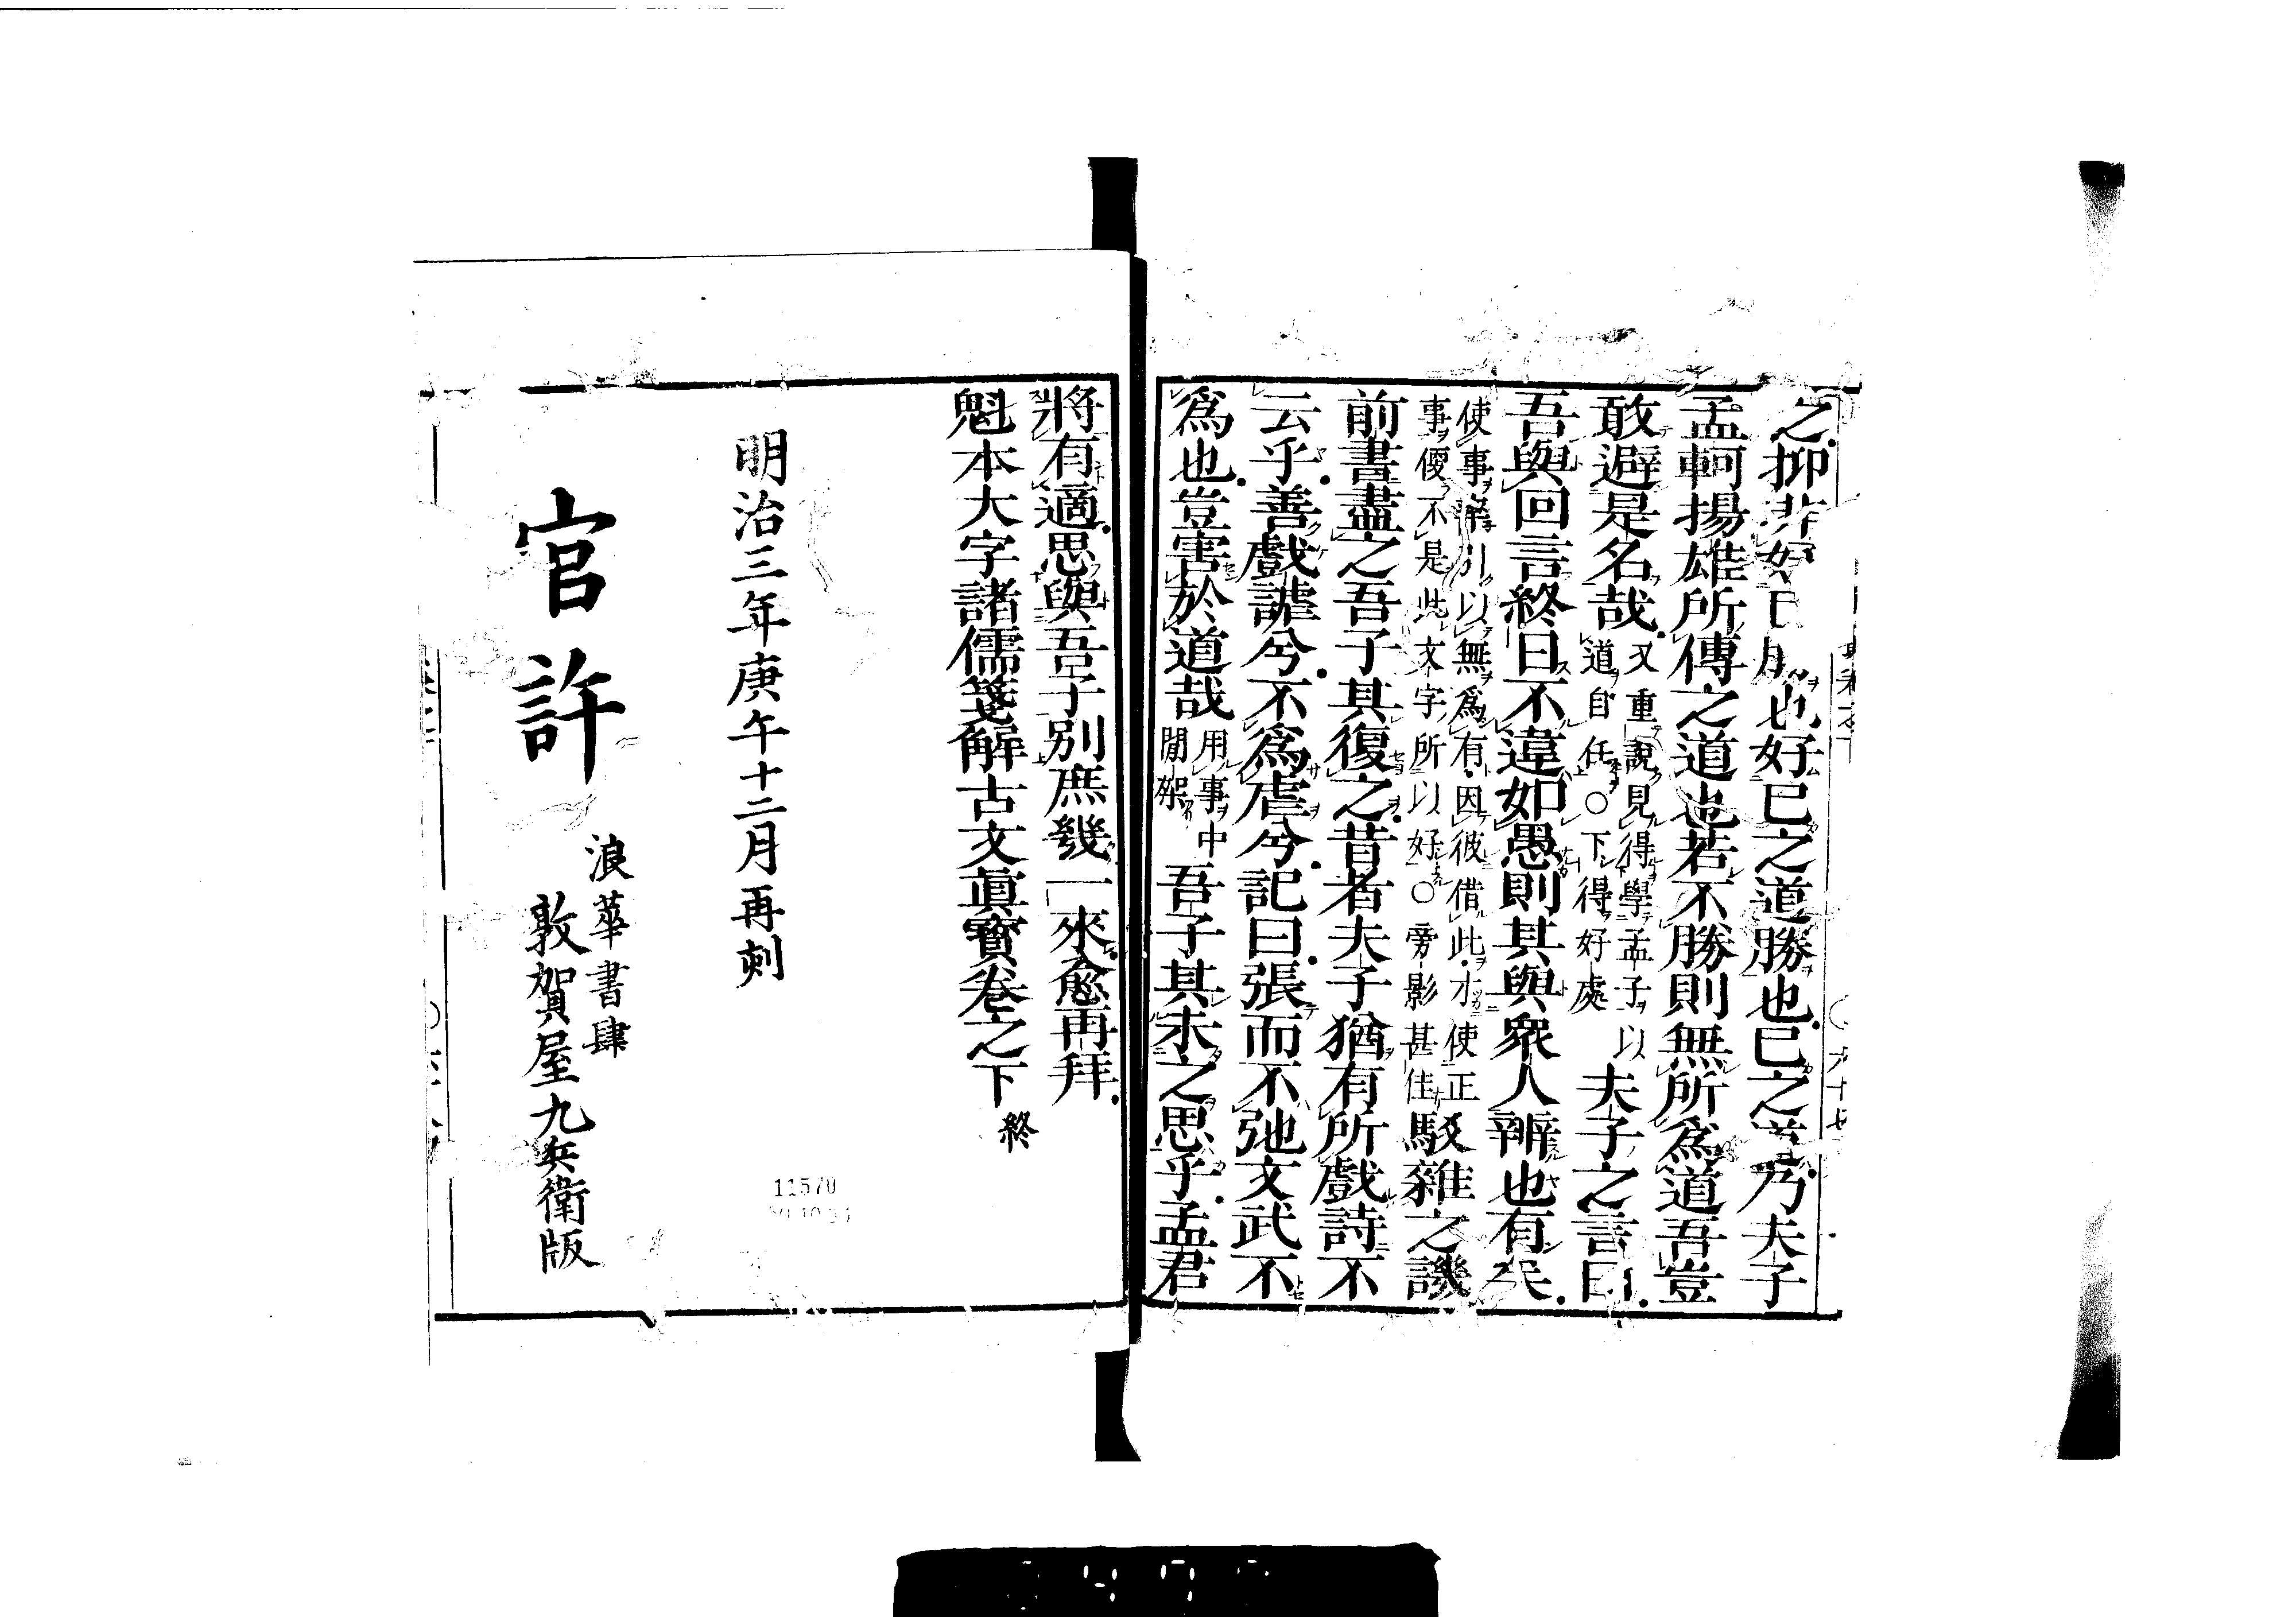 之抑非好己勝也好己之道勝也己之道乃夫子
孟軻揚雄所傳之道也若不勝則無所爲道吾豈
敢避是名哉又重說見得學孟子以道自任○下得好處夫子之言曰
吾與回言終日不違如愚則其與衆人辨也有矣
使事雖引以無爲有因彼借此才使正事便不是此文字所以好○旁影甚佳駁雜之譏
前書盡之吾子其復之昔者夫子猶有所戲詩不
云乎善戲謔兮不爲虐兮記曰張而不弛文武不
爲也豈害於道哉用事中閒架吾子其未之思乎孟君
將有適思與吾子別庶幾一來愈再拜
魁本大字諸儒箋解古文眞寶卷之下終
明治三年庚午十二月再刻
官許
浪華書肆
敦賀屋九兵衛版